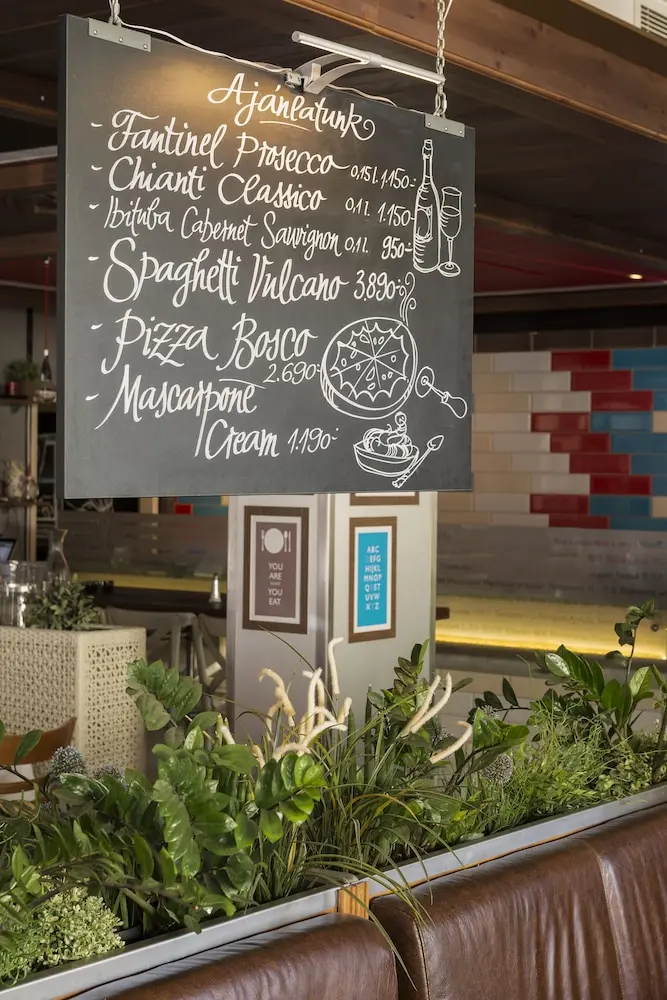 Ajánlatunk
- Fantinel Prosecco 0,15 l. 1.150.-
- Chianti Classico 0,1 l. 1.150.-
- Ibituba Cabernet Sauvignon 0,1 l. 950.-
- Spaghetti Vulcano 3.890.-
- Pizza Bosco
2.690.-
- Mascarpone
Cream 1.190.-
YOU
ARE
YOU
EAT
ABC
DEFG
HIJKL
MNOP
QRST
UVW
X/Z